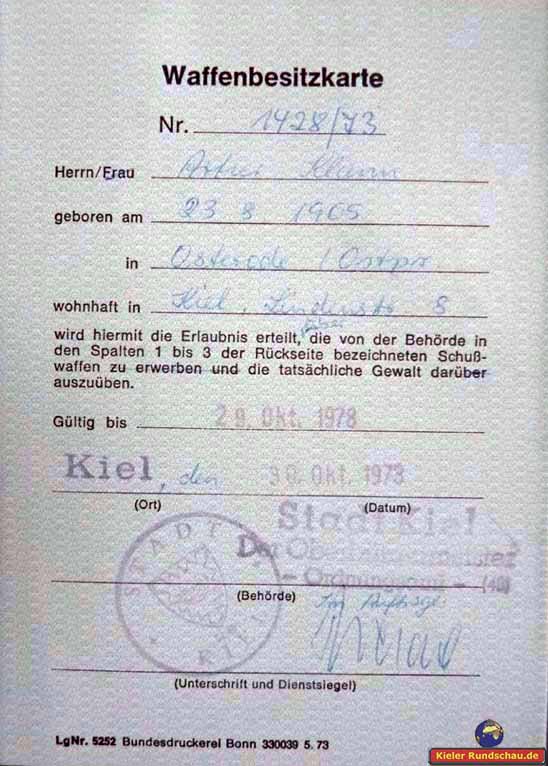 Waffenbesitzkarte
Nr. 1428/73
Herrn/Frau Artur Klann
geboren am 23 8 1905
in Osterode / Ostpr.
wohnhaft in Kiel, Lindenstr 8
wird hiermit die Erlaubnis erteilt, die von der Behörde in
den Spalten 1 bis 3 der Rückseite bezeichneten Schuß-
waffen zu erwerben und die tatsächliche Gewalt darüber
auszuüben.
Gültig bis 29. Okt. 1978
Kiel, den 30. Okt. 1973
(Ort) (Datum)
Stadt Kiel
Der Oberbürgermeister
- Ordnungsamt -
(Behörde) Im Auftrage
STADT KIEL
(Unterschrift und Dienstsiegel)
LgNr. 5252 Bundesdruckerei Bonn 330039 5. 73
Kieler Rundschau.de